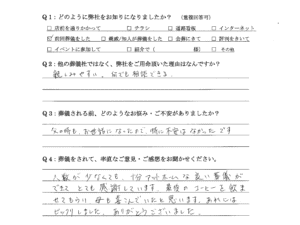 Q1：どのように弊社をお知りになりましたか？ （重複回答可）
□店前を通りかかって □チラシ □道路看板 □インターネット
☑前回葬儀をした □親戚/知人が葬儀をした □会葬にきて □評判をきいて
□イベントに参加して □紹介で（ 様） □その他
Q2：他の葬儀社ではなく、弊社をご用命頂いた理由はなんですか？
親しみやすい、何でも相談できる。
Q3：葬儀される前、どのようなお悩み・ご不安がありましたか？
父の時も、お世話になったので、特に不安はなかったです
Q4：葬儀をされて、率直なご意見・ご感想をお聞かせください。
人数が少なくても、十分アットホームな良い葬儀が
できて とても感謝しています。最後の コーヒーを飲ま
せてもらい、母も喜んでいたと思います。あれには
ビックリしました。ありがとうございました。